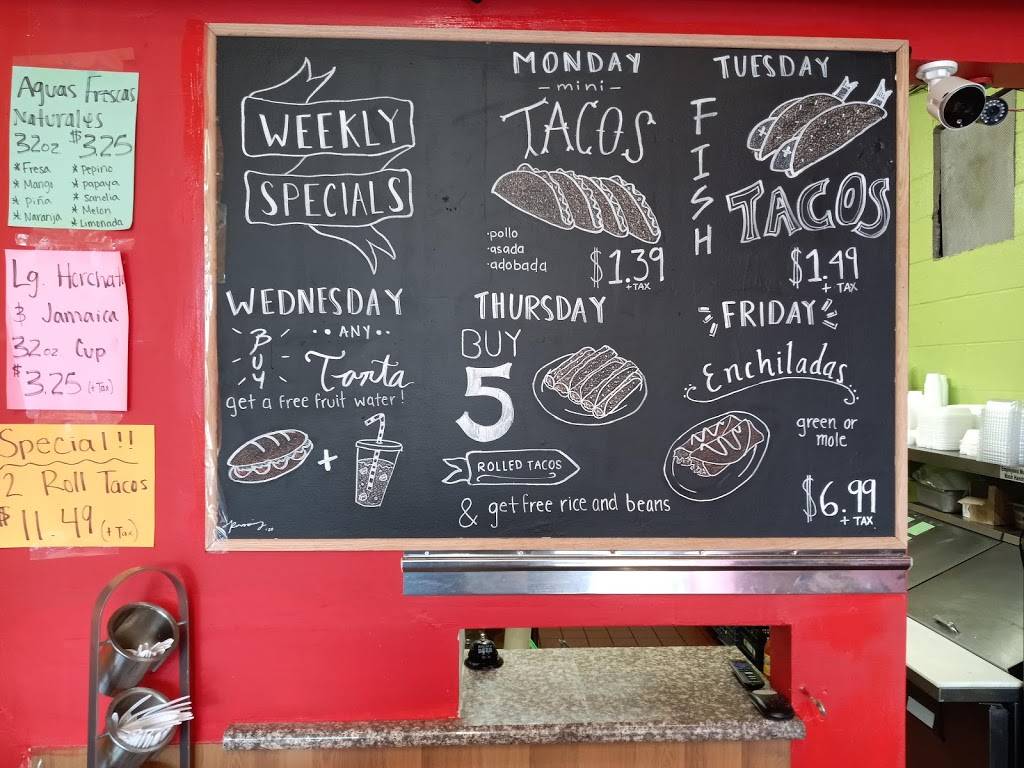 Aguas Frescas
Naturales
32oz $3.25
* Fresa * Pepino
* Mango * papaya
* piña * Sandia
* Naranja * Melon
* Limonada
Lg. Horchata
& Jamaica
32oz Cup
$3.25 (+Tax)
Special!!
2 Roll Tacos
$11.49 (+Tax)
WEEKLY
SPECIALS
MONDAY
- mini -
TACOS
·pollo
·asada
·adobada
$1.39
+ TAX
TUESDAY
FISH
TACOS
$1.49
+ TAX
WEDNESDAY
BUY
·· ANY ··
Torta
get a free fruit water!
+
THURSDAY
BUY
5
ROLLED TACOS
& get free rice and beans
FRIDAY
Enchiladas
green or
mole
$6.99
+ TAX